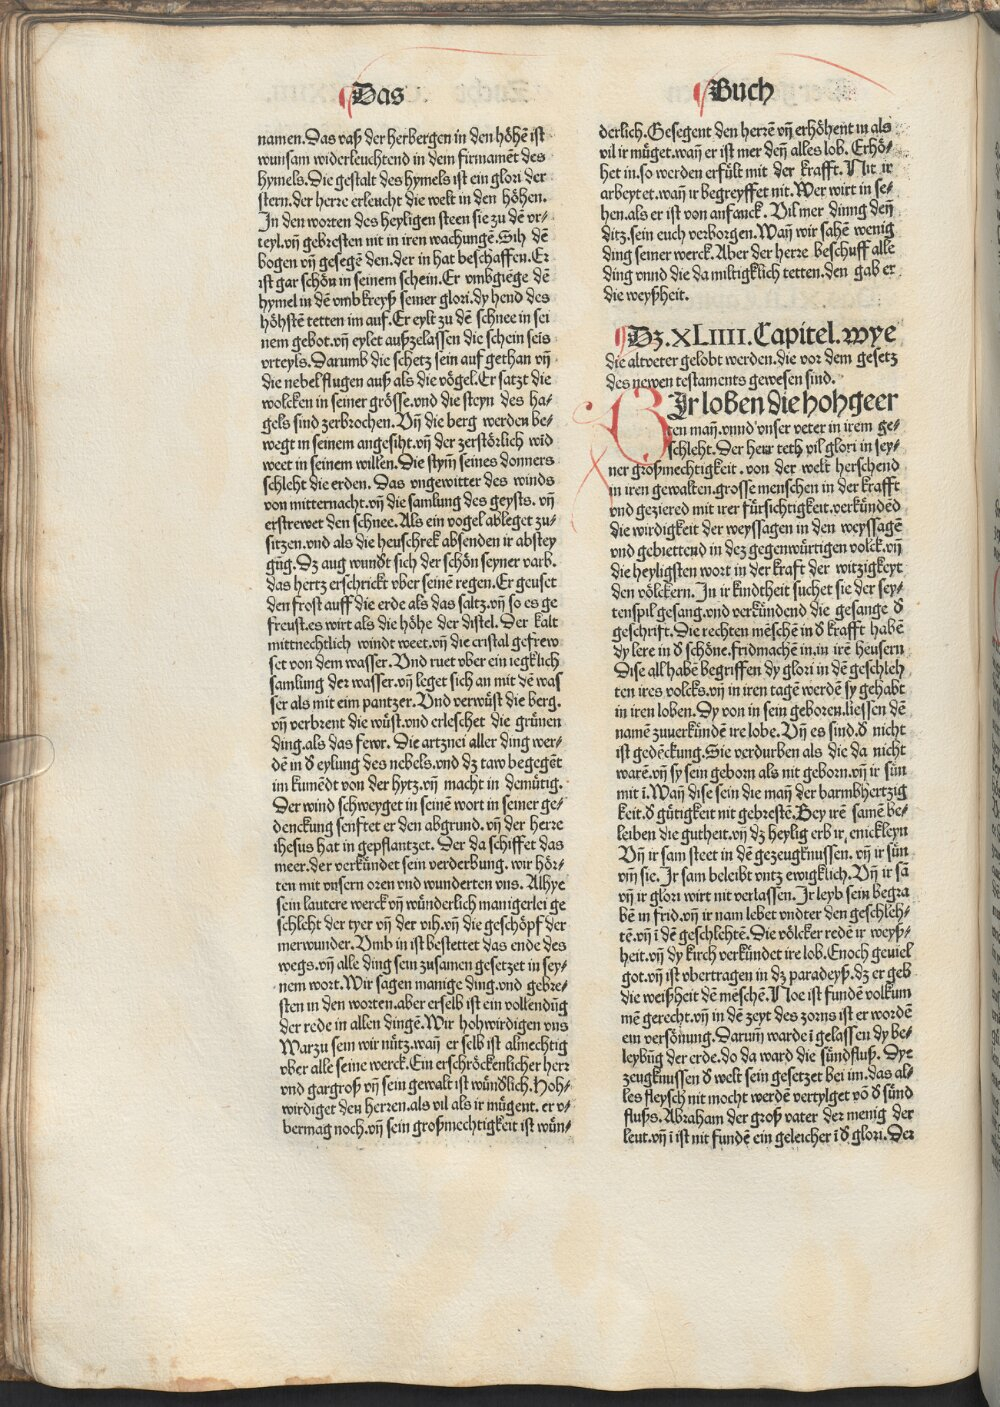 Das
Buch
namen.Das vaß der herbergen in den höhē ist
wunsam widerleuchtend in dem firmamēt des
hymels.Die gestalt des hymels ist ein glori der
stern.der herre erleucht die welt in den höhen.
In den worten des heyligen steen sie zu dē vr⸗
teyl.vn̄ gebresten nit in iren wachungē.Sih dē
bogen vn̄ gesegē den.der in hat beschaffen.Er
ist gar schön in seinem schein.Er vmbgiege dē
hymel in dē vmbkreyß seiner glori.dy hend des
höhstē tetten im auf.Er eylt zu dē schnee in sei
nem gebot.vn̄ eylet außzelassen die schein seis
vrteyls.Darumb die schetz sein auf gethan vn̄
die nebel flugen auß als die vögel.Er satzt die
wolcken in seiner grösse.vnd die steyn des ha⸗
gels sind zerbrochen.Vn̄ die berg werden be⸗
wegt in seinem angesiht.vn̄ der zerstörlich wid
weet in seinem willen.Die stym̄ seines donners
schleht die erden. Das vngewitter des winds
von mitternacht.vn̄ die samlung des geysts. vn̄
erstrewet den schnee.Als ein vogel ableget zu⸗
sitzen.vnd als die heuschrek absenden ir abstey
gūg.Dz aug wundt sich der schön seyner varb.
das hertz erschrickt vber seinē regen.Er geuset
den frost auff die erde als das saltz.vn̄ so es ge
freust.es wirt als die höhe der distel. Der kalt
mittnechtlich windt weet.vn̄ die cristal gefrew
set von dem wasser. Vnd ruet vber ein iegklich
samlung der wasser.vn̄ leget sich an mit dē was
ser als mit eim pantzer. Vnd verwüst die berg.
vn̄ verbrent die wüst.vnd erleschet die grünen
ding.als das fewr. Die artznei aller ding wer⸗
dē in d̄ eylung des nebels.vnd dz taw begegēt
im kumēdt von der hytz.vn̄ macht in demütig.
Der wind schweyget in seinē wort in seiner ge⸗
denckung senftet er den abgrund. vn̄ der herre
ihesus hat in gepflantzet. Der da schiffet das
meer.der verkündet sein verderbung. wir hör⸗
ten mit vnsern oren vnd wunderten vns. Alhye
sein lautere werck vn̄ wünderlich manigerlei ge
schleht der tyer vn̄ der vih.vn̄ die geschöpf der
merwunder.Vmb in ist bestettet das ende des
wegs.vn̄ alle ding sein zusamen gesetzet in sey⸗
nem wort.Wir sagen manige ding.vnd gebre⸗
sten in den worten.aber erselb ist ein vollendūg
der rede in allen dingē.Wir hohwirdigen vns
Warzu sein wir nütz.wan̄ er selb ist almechtig
vber alle seine werck.Ein erschröckenlicher herr
vnd gargroß vn̄ sein gewalt ist wündlich.Hoh⸗
wirdiget den herren.als vil als ir mügent. er v⸗
bermag noch.vn̄ sein großmechtigkeit ist wün⸗
derlich.Gesegent den herrē vn̄ erhöhent in als
vil ir müget.wan̄ er ist mer den̄ alles lob. Erhö⸗
het in.so werden erfült mit der krafft. Nit ir
arbeytet.wan̄ ir begreyffet nit.Wer wirt in se⸗
hen.als er ist von anfanck. Vil mer dinng den̄
ditz.sein euch verborgen.Wan̄ wir sahē wenig
ding seiner werck.Aber der herre beschuff alle
ding vnnd die da miltigklich tetten.den gab er
die weyßheit.
Dz.XLIIII.Capitel.wye
die altveter gelobt werden.die vor dem gesetz
des newen testaments gewesen sind.
Wir loben die hohgeer
ten man̄.vnnd vnser veter in irem ge⸗
schleht.Der herr teth vil glori in sey⸗
ner großmechtigkeit.von der welt herschend
in iren gewalten.grosse menschen in der krafft
vnd geziered mit irer fürsichtigkeit.verkündēd
die wirdigkeit der weyssagen in den weyssagē
vnd gebiettend in dez gegenwürtigen volck.vn̄
die heyligsten wort in der kraft der witzigkeyt
den völckern. In ir kindtheit suchet sie der sey⸗
tenspil gesang.vnd verkündend die gesange d̄
geschrift.Die rechten mēschē in d̄ krafft habē
dy lere in d̄ schöne.fridmachē in.in irē heusern
Dise all habē begriffen dy glori in dē geschleh
ten ires volcks.vn̄ in iren tagē werdē sy gehabt
in iren loben.Dy von in sein geboren.liessen dē
namē zuverkündē ire lobe.Vn̄ es sind.d̄ nicht
ist gedēckung.Sie verdurben als die da nicht
warē.vn̄ sy sein geborn als nit geborn.vn̄ ir sün
mit ī.Wan̄ dise sein die man̄ der barmbhertzig
keit.d̄ gütigkeit nit gebrestē.Bey irē samē be⸗
leiben die gutheit.vn̄ dz heylig erb ir, enickleyn
Vn̄ ir sam steet in dē gezeugknussen. vn̄ ir sün
vm̄ sie. Ir sam beleibt vntz ewigklich.Vn̄ ir sā
vn̄ ir glori wirt nit verlassen. Ir leyb sein begra
bē in frid.vn̄ ir nam lebet vndter den geschleh⸗
tē.vn̄ ī dē geschlehtē.Die völcker redē ir weyß⸗
heit.vn̄ dy kirch verkündet ire lob.Enoch geviel
got.vn̄ ist vbertragen in dz paradeyß.dz er geb
die weißheit dē mēschē.Noe ist fundē volkum
mē gerecht.vn̄ in dē zeyt des zorns ist er wordē
ein versönung.Darum̄ warde ī gelassen dy be⸗
leybūg der erde.do da ward die sündfluß. Dye
zeugknussen d̄ welt sein gesetzet bei im.das al⸗
les fleysch nit mocht werdē vertylget vō d̄ sünd
flußs.Abraham der groß vater der menig der
leut.vn̄ ī ist nit fundē ein geleicher ī d̄ glori.Der